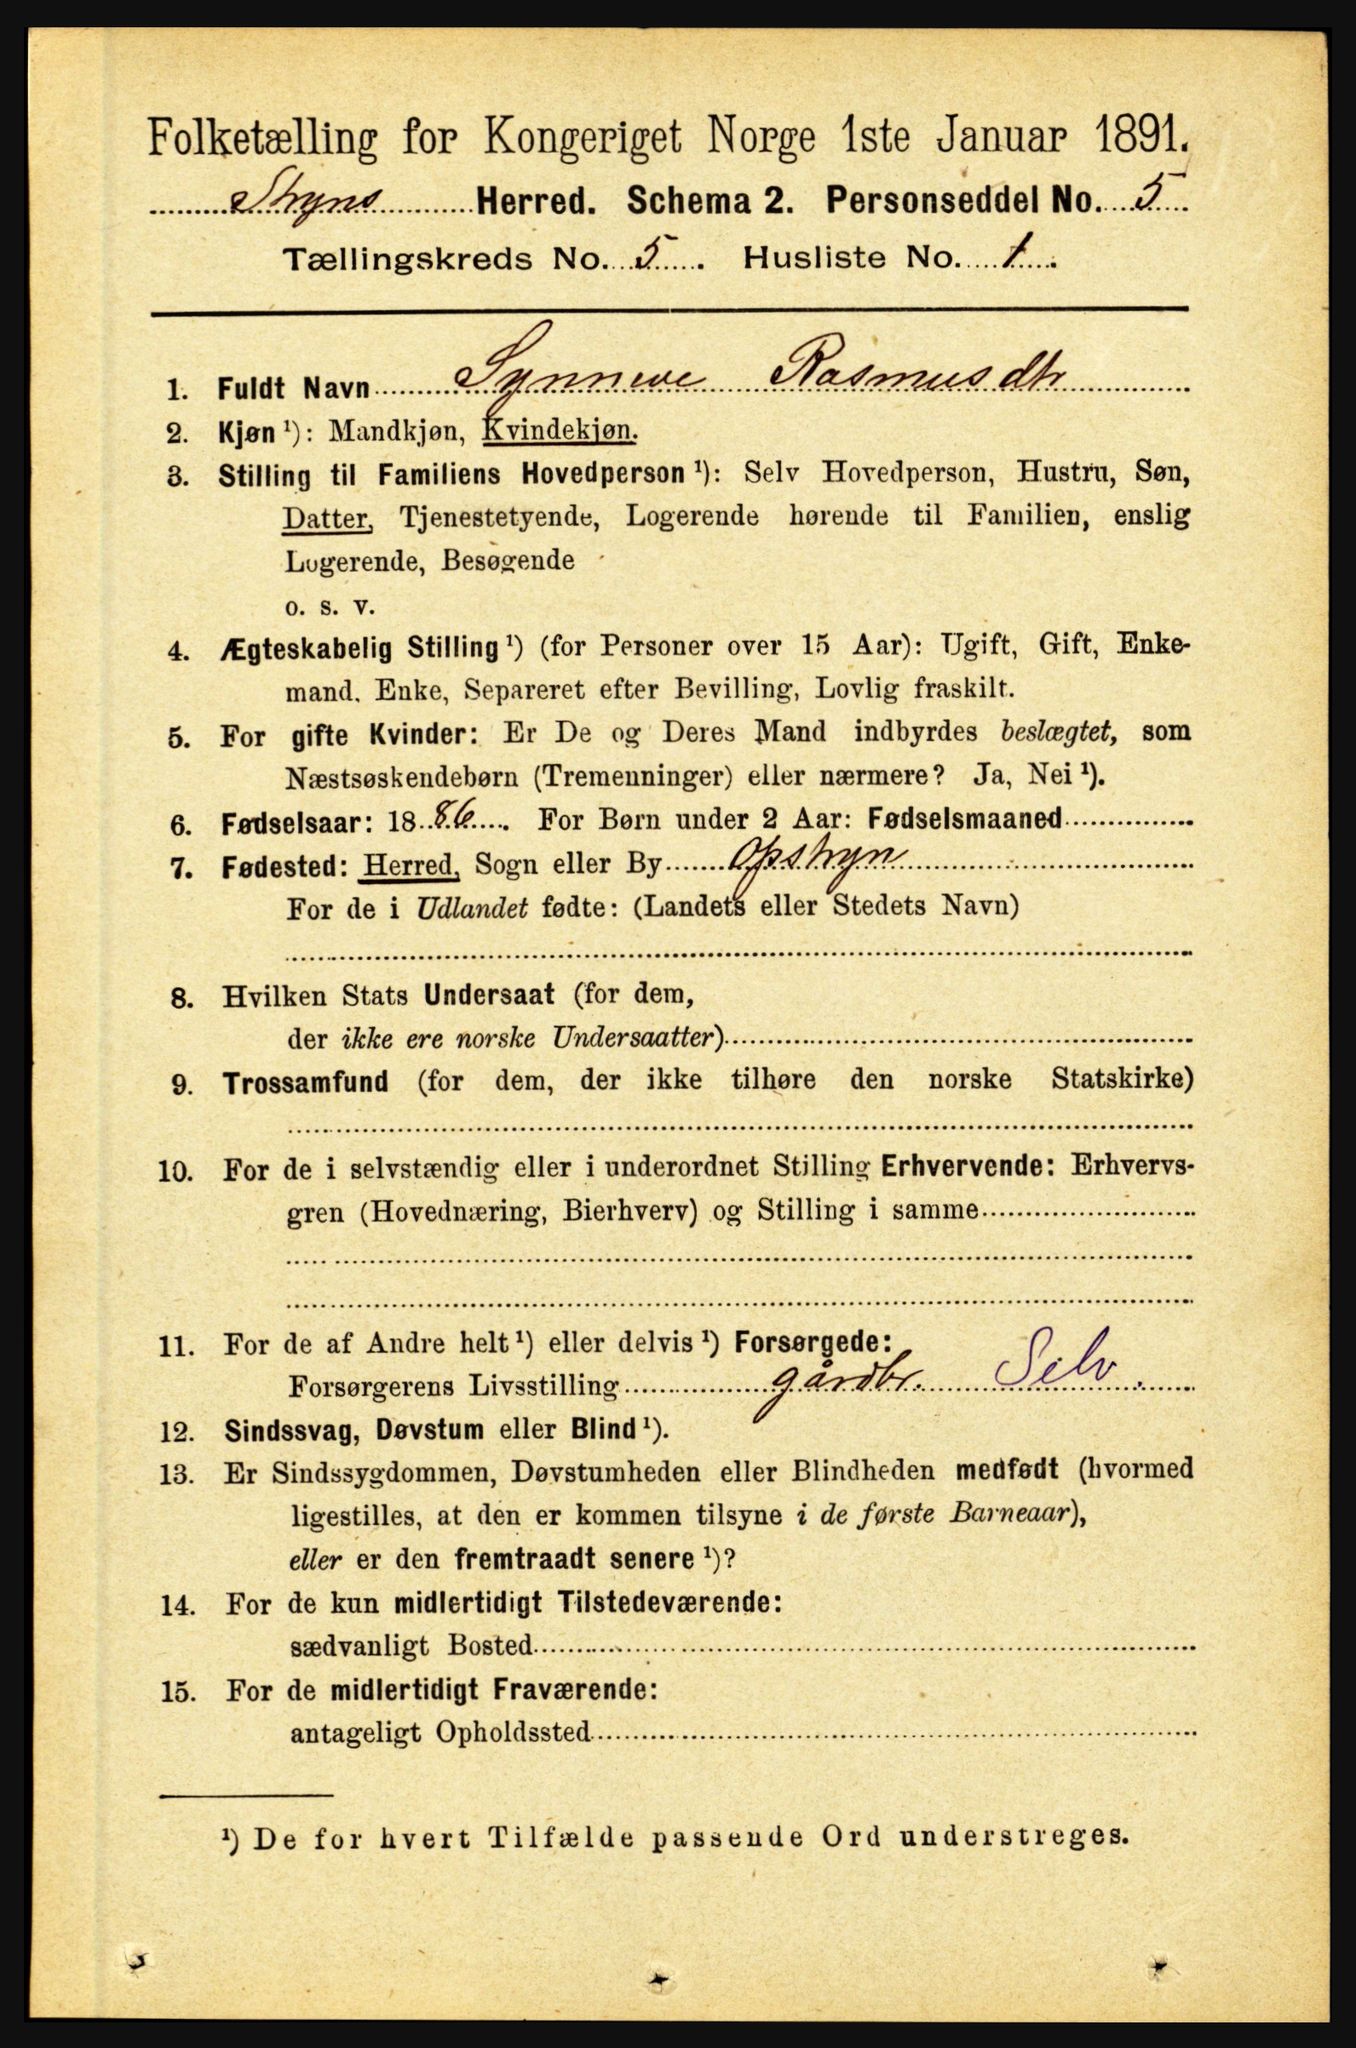 Folketælling for Kongeriget Norge 1ste Januar 1891.
Stryns Herred. Schema 2. Personseddel No. 5
Tællingskreds No. 5. Husliste No. 1.
1. Fuldt Navn Synneve Rasmusdtr
2. Kjøn ¹): Mandkjøn, Kvindekjøn.
3. Stilling til Familiens Hovedperson ¹): Selv Hovedperson, Hustru, Søn,
Datter, Tjenestetyende, Logerende hørende til Familien, enslig
Logerende, Besøgende
o. s. v.
4. Ægteskabelig Stilling ¹) (for Personer over 15 Aar): Ugift, Gift, Enke-
mand, Enke, Separeret efter Bevilling, Lovlig fraskilt.
5. For gifte Kvinder: Er De og Deres Mand indbyrdes beslægtet, som
Næstsøskendebørn (Tremenninger) eller nærmere? Ja, Nei ¹).
6. Fødselsaar: 1886. For Børn under 2 Aar: Fødselsmaaned
7. Fødested: Herred, Sogn eller By Opstryn
For de i Udlandet fødte: (Landets eller Stedets Navn)
8. Hvilken Stats Undersaat (for dem,
der ikke ere norske Undersaatter)
9. Trossamfund (for dem, der ikke tilhøre den norske Statskirke)
10. For de i selvstændig eller i underordnet Stilling Erhvervende: Erhvervs-
gren (Hovednæring, Bierhverv) og Stilling i samme
11. For de af Andre helt ¹) eller delvis ¹) Forsørgede:
Forsørgerens Livsstilling gårdbr. Selv.
12. Sindssvag, Døvstum eller Blind ¹).
13. Er Sindssygdommen, Døvstumheden eller Blindheden medfødt (hvormed
ligestilles, at den er kommen tilsyne i de første Barneaar),
eller er den fremtraadt senere ¹)?
14. For de kun midlertidigt Tilstedeværende:
sædvanligt Bosted
15. For de midlertidigt Fraværende:
antageligt Opholdssted
¹) De for hvert Tilfælde passende Ord understreges.